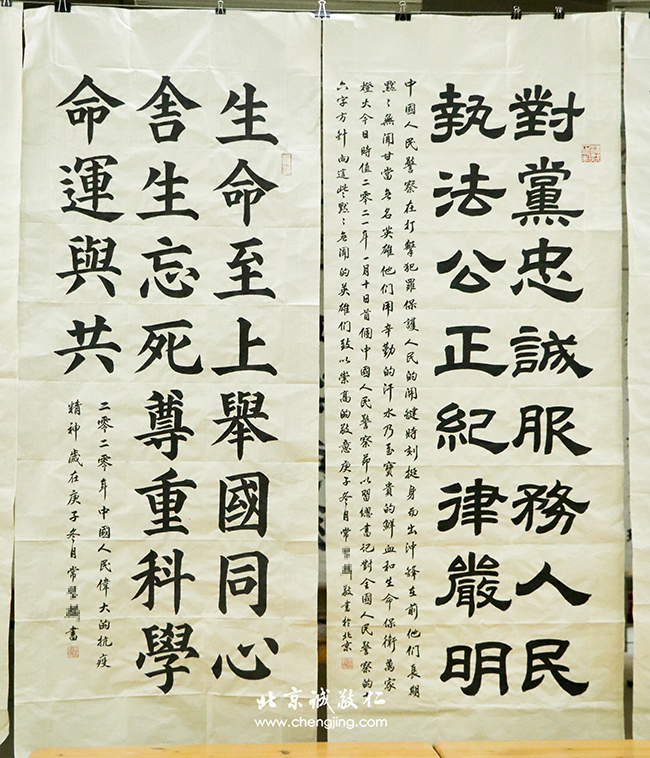 對黨忠誠服務人民
執法公正紀律嚴明
中國人民警察在打擊犯罪保護人民的關鍵時刻挺身而出沖鋒在前他們長期
默〻無聞甘當無名英雄他們用辛勤的汗水乃至寶貴的鮮血和生命保衛萬家
燈火今日時值二零二一年一月十日首個中國人民警察節以習總書記對全國人民警察的十
六字方針向這些默〻無聞的英雄們致以崇高的敬意庚子冬月常 敬書於北京
生命至上舉國同心
舍生忘死尊重科學
命運與共
二零二零年中國人民偉大的抗疫
精神歲在庚子冬月常 書
北京诚敬仁
www.chengjing.com